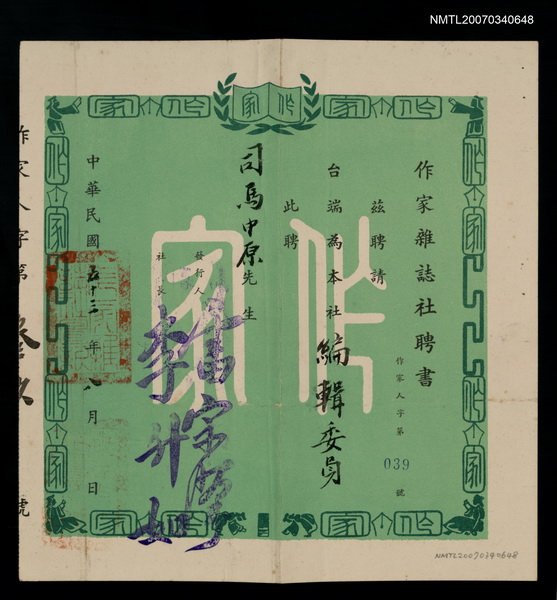 NMTL20070340648
作家
作家雜誌社聘書
作家人字第
039
號
茲聘請
台端為本社編輯委員
此聘
司馬中原先生
發行人
社長 李升如
中華民國五十三年八月 日
作家人字第
號
NMTL20070340648